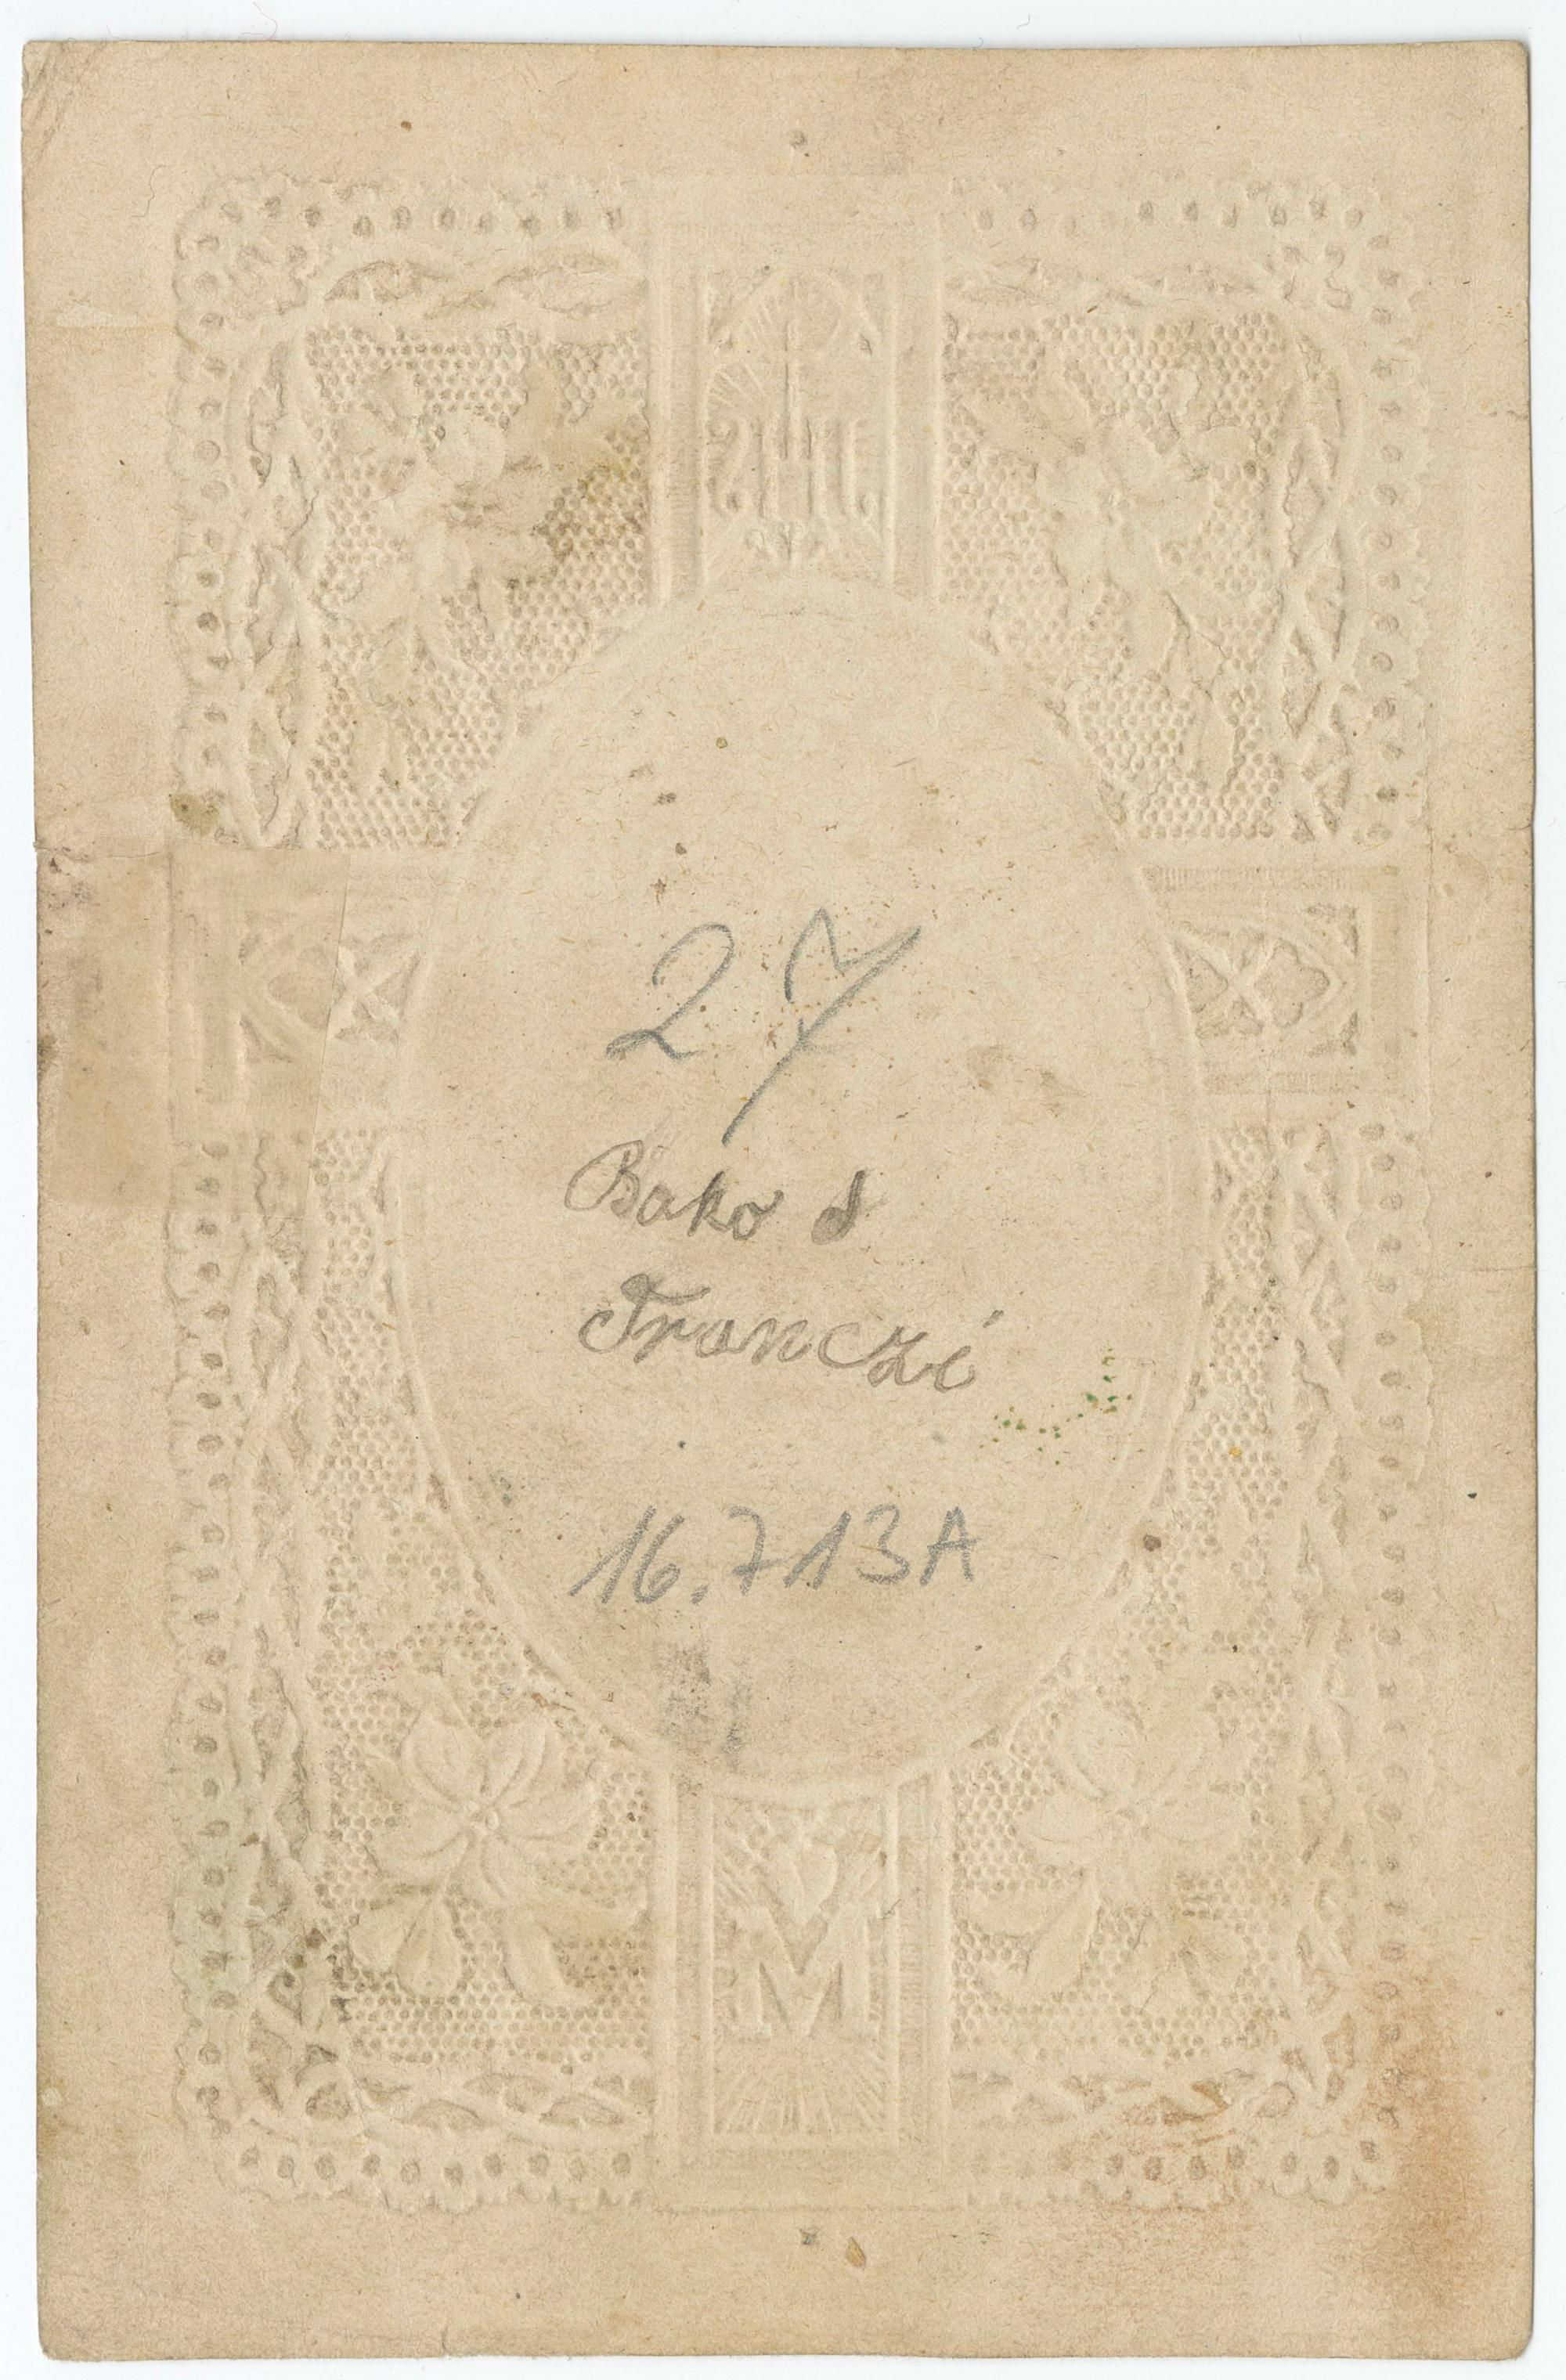 IHS
27
Bako d
Franczi
16.713A
M